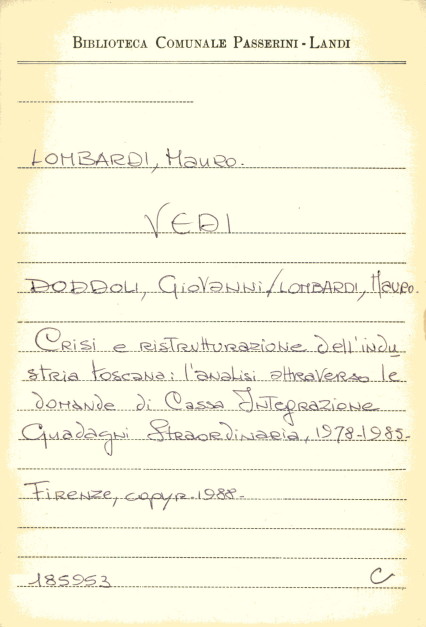 BIBLIOTECA COMUNALE PASSERINI - LANDI
LOMBARDI, Mauro.
VEDI
DODDOLI, Giovanni/LOMBARDI, Mauro.
Crisi e ristrutturazione dell'indu
stria toscana: l'analisi attraverso le
domande di Cassa Integrazione
Guadagni Straordinaria, 1978-1985.
Firenze, copyr. 1988.
185953 C